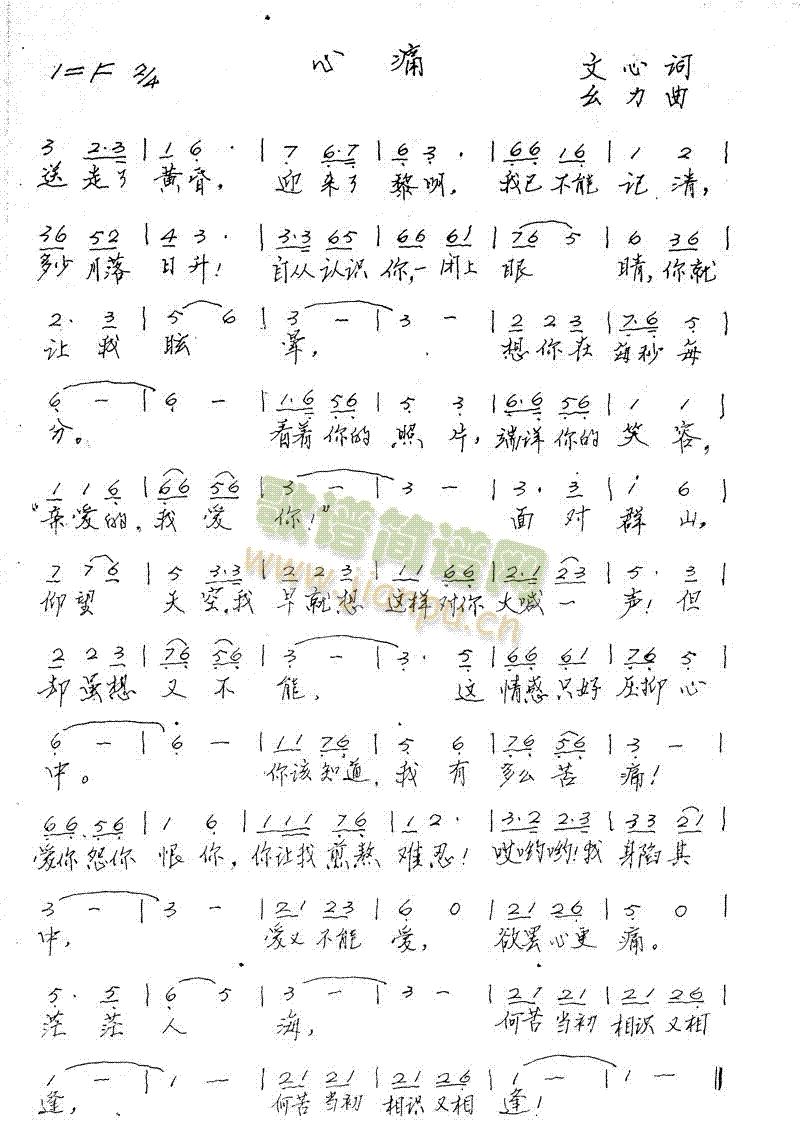 心痛
1=F 2/4
文心词
幺力曲
3 2·3 | 1 6· | 7 6·7 | 6 3· | 66 16 | 1 2 |
送走了黄昏，迎来了黎明，我已不能记清，
36 52 | 4 3· | 3·3 65 | 66 61 | 76 5 | 6 36 |
多少月落日升！自从认识你，一闭上眼睛，你就
2· 3 | 5 6 | 3 — | 3 — | 2 2 3 | 7·6 5 |
让我眩晕，想你在每秒每
6 — | 6 — | 1·6 56 | 5 3 | 6·6 56 | 1 1 |
分。看着你的照片，端详你的笑容，
1 1 6 | 66 56 | 3 — | 3 — | 3· 3 | 1 6 |
“亲爱的，我爱你！”面对群山，
7 76 | 5 3·3 | 2 2 3 | 11 66 | 2·1 23 | 5· 3 |
仰望天空，我早就想这样对你大喊一声！但
2 2 3 | 76 56 | 3 — | 3· 5 | 66 61 | 76 5 |
却虽想又不能，这情感只好压抑心
6 — | 6 — | 11 76 | 5 6 | 76 56 | 3 — |
中。你该知道，我有多么苦痛！
66 56 | 1 6 | 111 76 | 1 2· | 3·2 2·3 | 33 21 |
爱你怨你恨你，你让我煎熬难忍！哎哟哟！我身陷其
3 — | 3 — | 21 23 | 6 0 | 21 26 | 5 0 |
中，爱又不能爱，欲罢心更痛。
5· 5 | 6 5 | 3 — | 3 — | 21 21 | 21 26 |
茫茫人海，何苦当初相识又相
1 — | 1 — | 21 21 | 21 26 | 1 — | 1 — ‖
逢，何苦当初相识又相逢！
歌谱简谱网
www.jianpu.cn